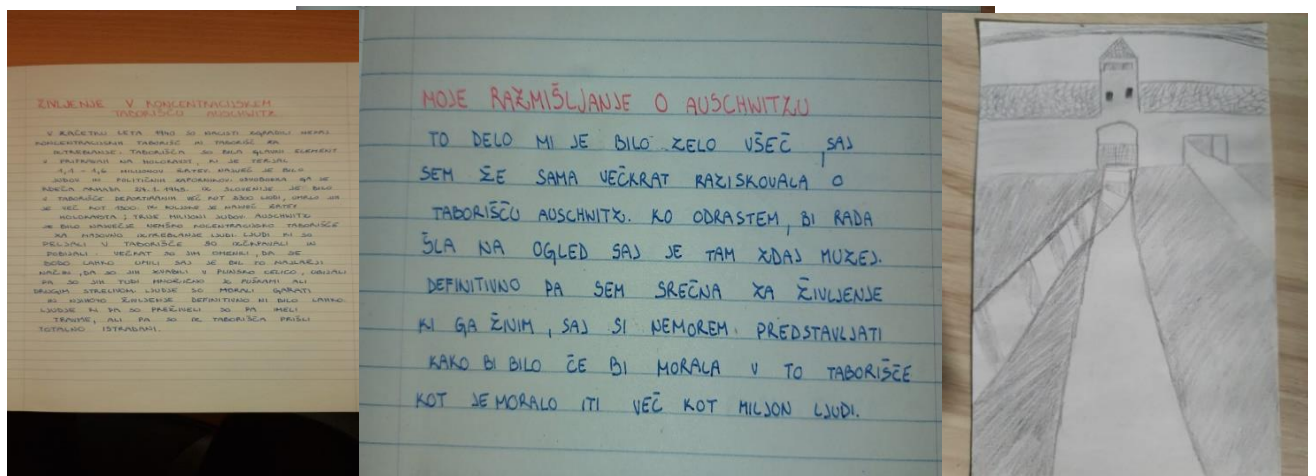 ŽIVLJENJE V KONCENTRACIJSKEM
TABORIŠČU AUSCHWITZ
V ZAČETKU LETA 1940 SO NACISTI ZGRADILI NEKAJ
KONCENTRACIJSKIH TABORIŠČ IN TABORIŠČ ZA
IZTREBLJANJE. TABORIŠČA SO BILA GLAVNI ELEMENT
V PRIPRAVAH NA HOLOKAVST, KI JE TERJAL
1,1 - 1,6 MILIJONOV ŽRTEV. NAJVEČ JE BILO
JUDOV IN POLITIČNIH ZAPORNIKOV. OSVOBODILA GA JE
RDEČA ARMADA 27.1.1945. IZ SLOVENIJE JE BILO
V TABORIŠČE DEPORTIRANIH VEČ KOT 2300 LJUDI, UMRLO JIH
JE VEČ KOT 1300. IZ POLJSKE JE NAJVEČ ŽRTEV
HOLOKAVSTA; TRIJE MILIJONI JUDOV. AUSCHWITZ
JE BILO NAJVEČJE NEMŠKO KONCENTRACIJSKO TABORIŠČE
ZA MASOVNO IZTREBLJANJE LJUDI. LJUDI KI SO
PELJALI V TABORIŠČE SO IZČRPAVALI IN
POBIJALI. VEČKRAT SO JIM OMENILI, DA SE
BODO LAHKO UMILI SAJ JE BIL TO NAJLAŽJI
NAČIN, DA SO JIH ZVABILI V PLINSKO CELICO, UBIJALI
PA SO JIH TUDI MNOŽIČNO S PUŠKAMI ALI
DRUGIM STRELNIM. LJUDJE SO MORALI GARATI
IN NJIHOVO ŽIVLJENJE DEFINITIVNO NI BILO LAHKO.
LJUDJE KI PA SO PREŽIVELI SO PA IMELI
TRAVME, ALI PA SO IZ TABORIŠČA PRIŠLI
TOTALNO ISTRADANI.
MOJE RAZMIŠLJANJE O AUSCHWITZU
TO DELO MI JE BILO ZELO VŠEČ, SAJ
SEM ŽE SAMA VEČKRAT RAZISKOVALA O
TABORIŠČU AUSCHWITZ. KO ODRASTEM, BI RADA
ŠLA NA OGLED SAJ JE TAM ZDAJ MUZEJ.
DEFINITIVNO PA SEM SREČNA ZA ŽIVLJENJE
KI GA ŽIVIM, SAJ SI NEMOREM PREDSTAVLJATI
KAKO BI BILO ČE BI MORALA V TO TABORIŠČE
KOT JE MORALO ITI VEČ KOT MILJON LJUDI.